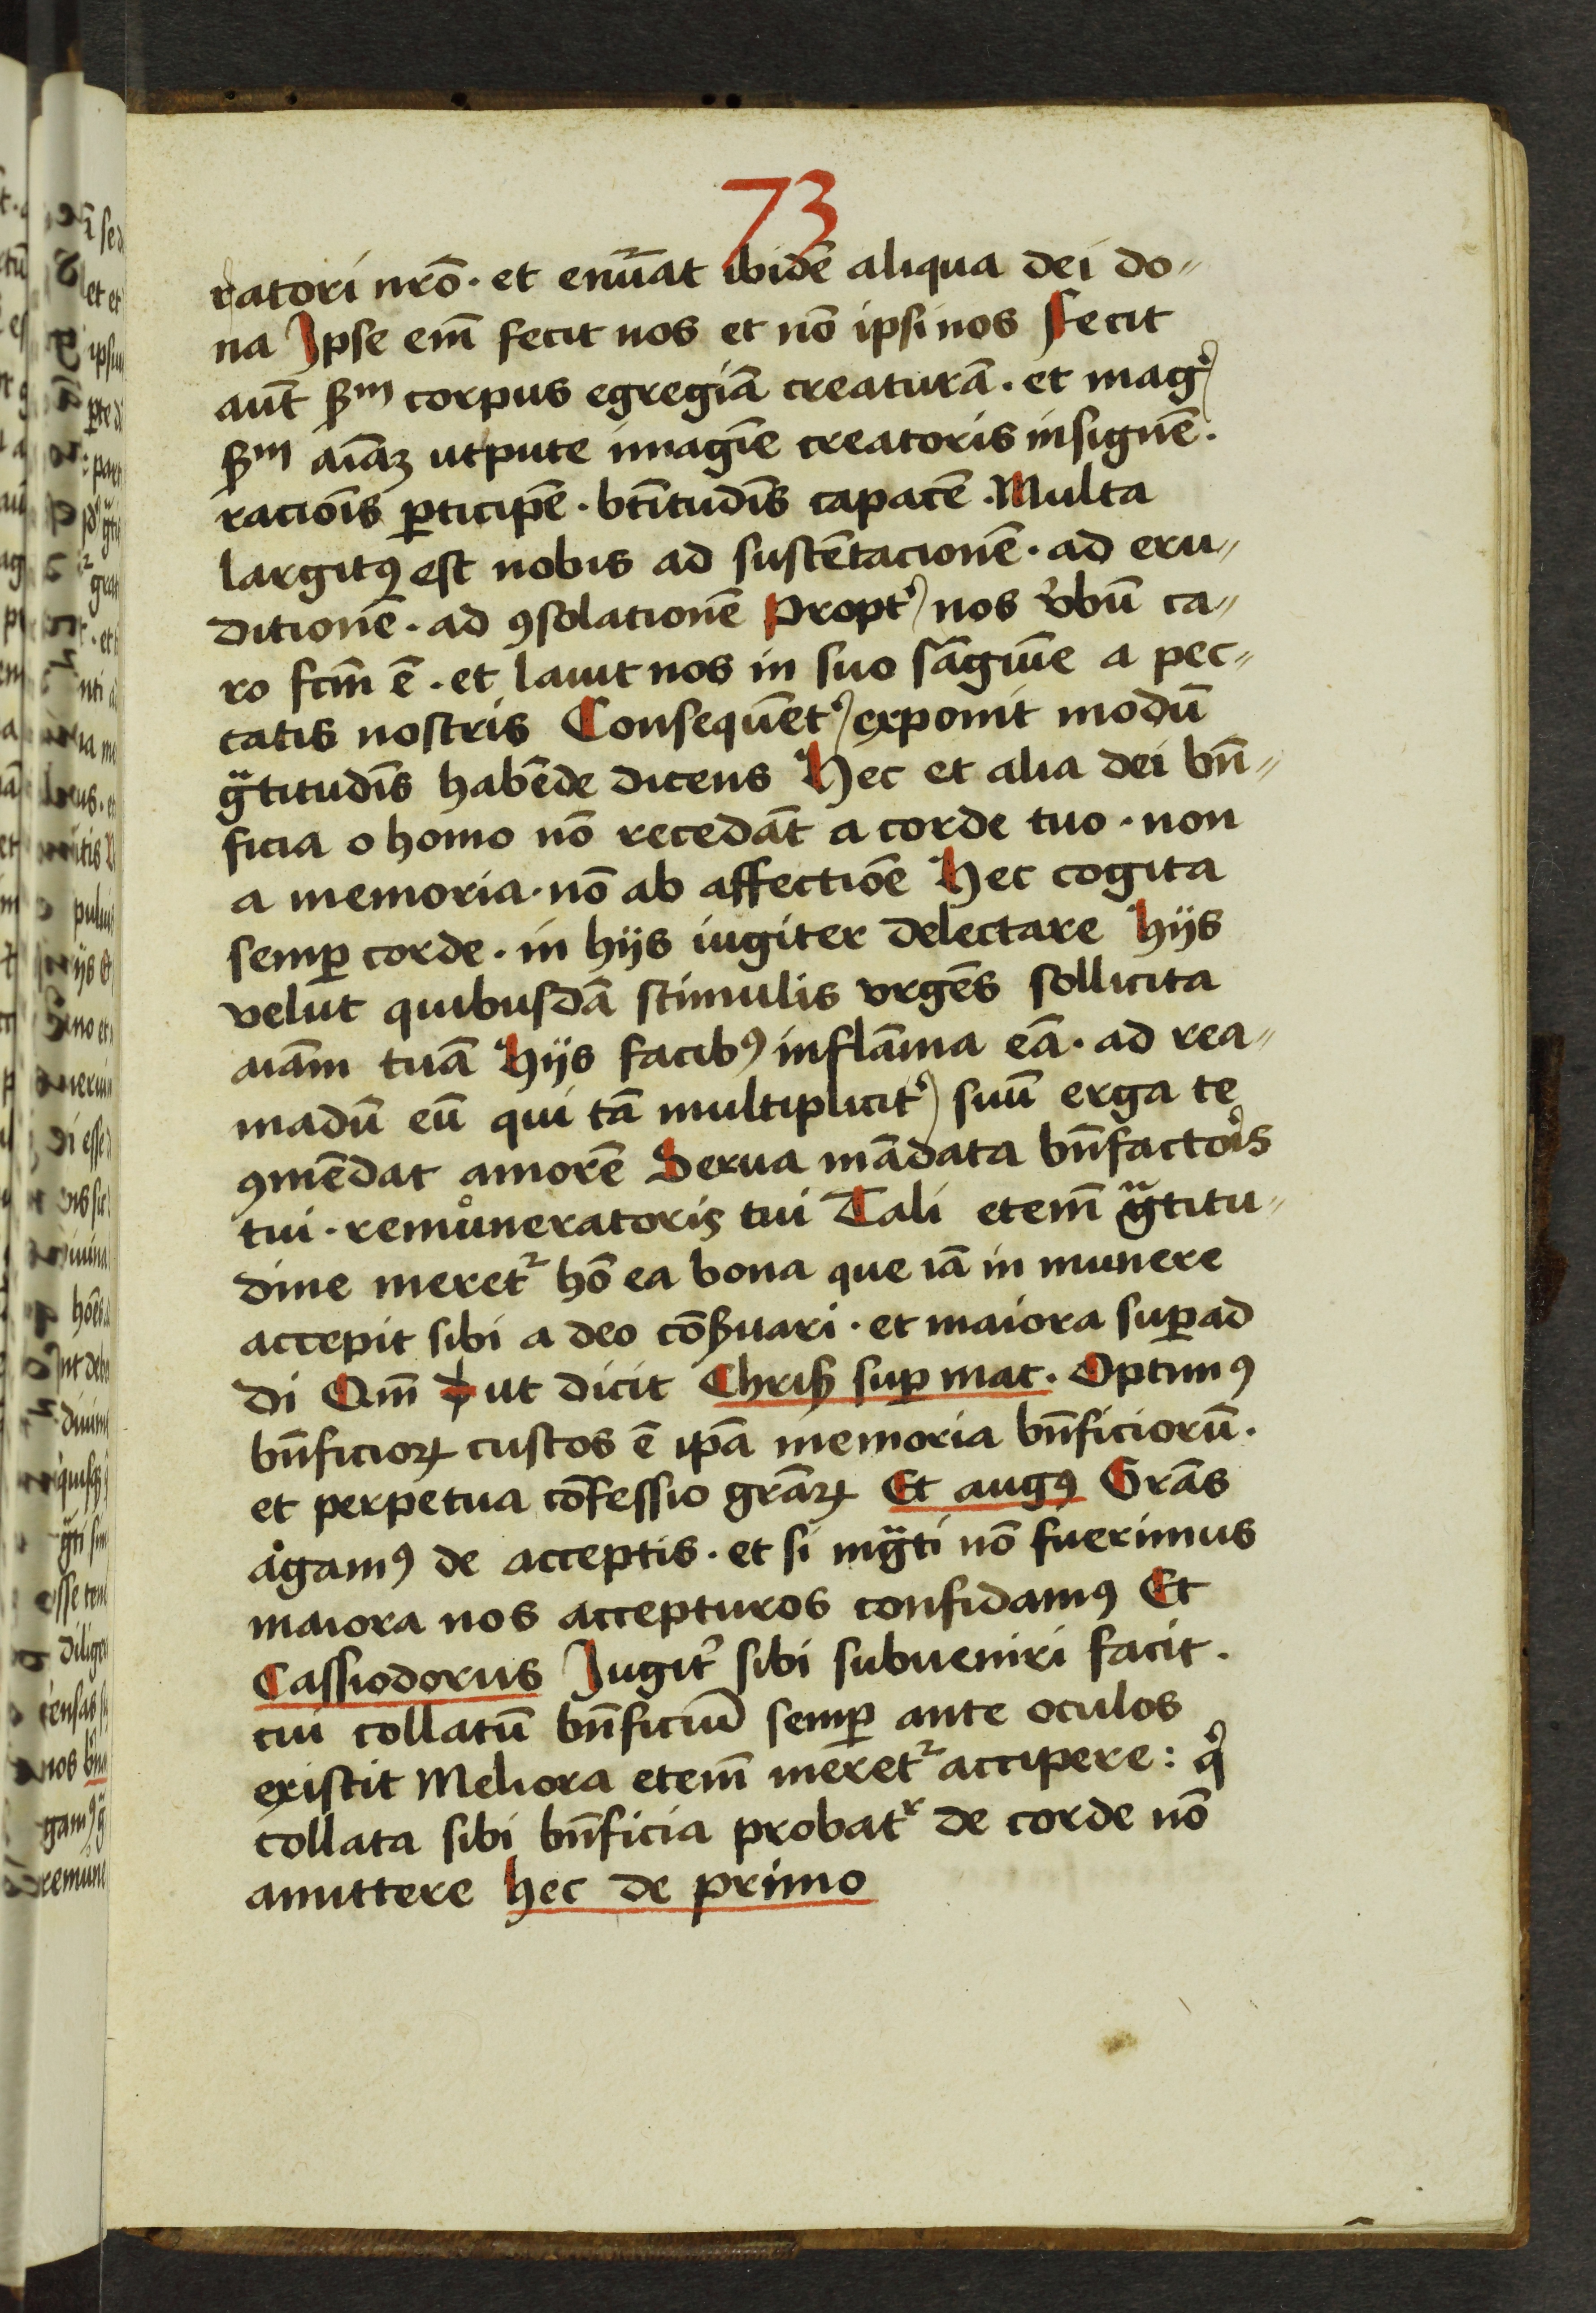 73
ratori nrō · et enūat ibidē aliqua dei do〃
na Ipse em̄ fecit nos et nō ipsi nos Fecit
aūt ẜm corpus egregiā creaturā · et magꝭ
ẜm aīaꝫ utpute imagīe creatoris insignē ·
racioīs ꝑticipē · btītudīs capacē · Multa
largitꝰ est nobis ad sustētacionē · ad eru〃
ditionē · ad ꝯsolationē Proptʾ nos v̓bū ca〃
ro fcm̄ ē · et lauit nos in suo sāgiue a pec〃
catis nostris Consequēt᾿ exponit modū
gᵃtitudīs habēde dicens Hec et alia dei bn̄〃
ficia o homo nō recedāt a corde tuo · non
a memoria · nō ab affectiōe Hec cogita
semꝑ corde · in hijs iugiter delectare Hijs
velut quibusdā stimulis vrgēs sollicita
aiām tuā Hijs facibꝰ inflāma eā · ad rea〃
madū eū qui tā multiplicit᾿ suū erga te
ꝯmēdat amorē Serua mādata bn̄factoris
tui · remůneratoris tui Tali etem̄ gᵃtitu〃
dine meret² hō ea bona que iā in munere
accepit sibi a deo cōẜuari · et maiora suꝑad
di Qm̄ ut dicit Chriẜ suꝑ mat · Optimꝰ
bn̄ficioꝝ custos ē ip̄a memoria bn̄ficiorū ·
et perpetua cōfessio grāꝝ Et augꝰ Grās
agamꝰ de acceptis · et si ingᵃti nō fuerimus
maiora nos accepturos confidamꝰ Et
Cassiodorus Iugit᾿ sibi subueniri facit ·
cui collatū bn̄ficiū semꝑ ante oculos
existit Meliora etem̄ meret² accipere : qͥ
collata sibi bn̄ficia probatʳ de corde nō
amittere hec de primo